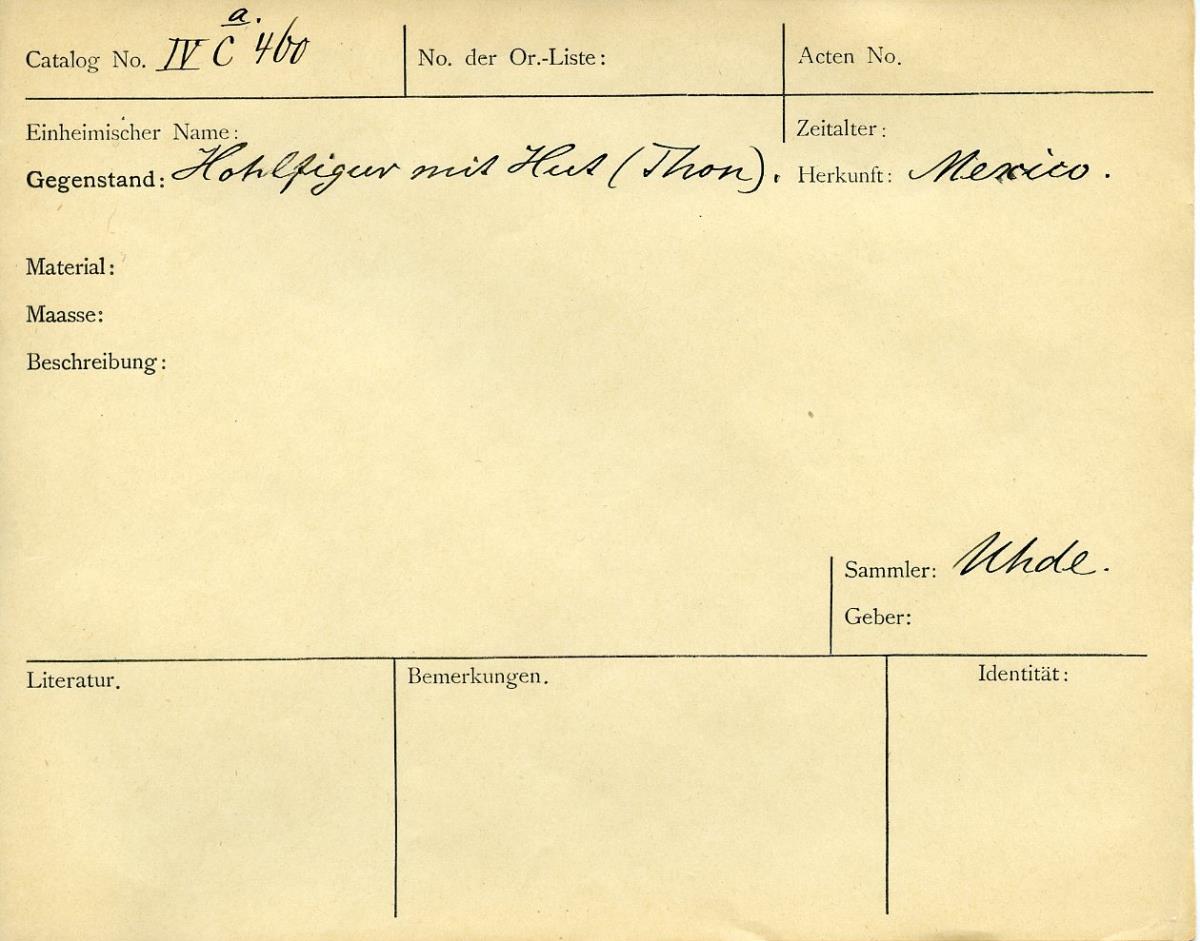 Catalog No. IV Ca. 460
No. der Or.-Liste:
Acten No.
Einheimischer Name:
Zeitalter:
Gegenstand: Hohlfigur mit Hut (Thon).
Herkunft: Mexico.
Material:
Maasse:
Beschreibung:
Sammler: Uhde.
Geber:
Literatur.
Bemerkungen.
Identität: